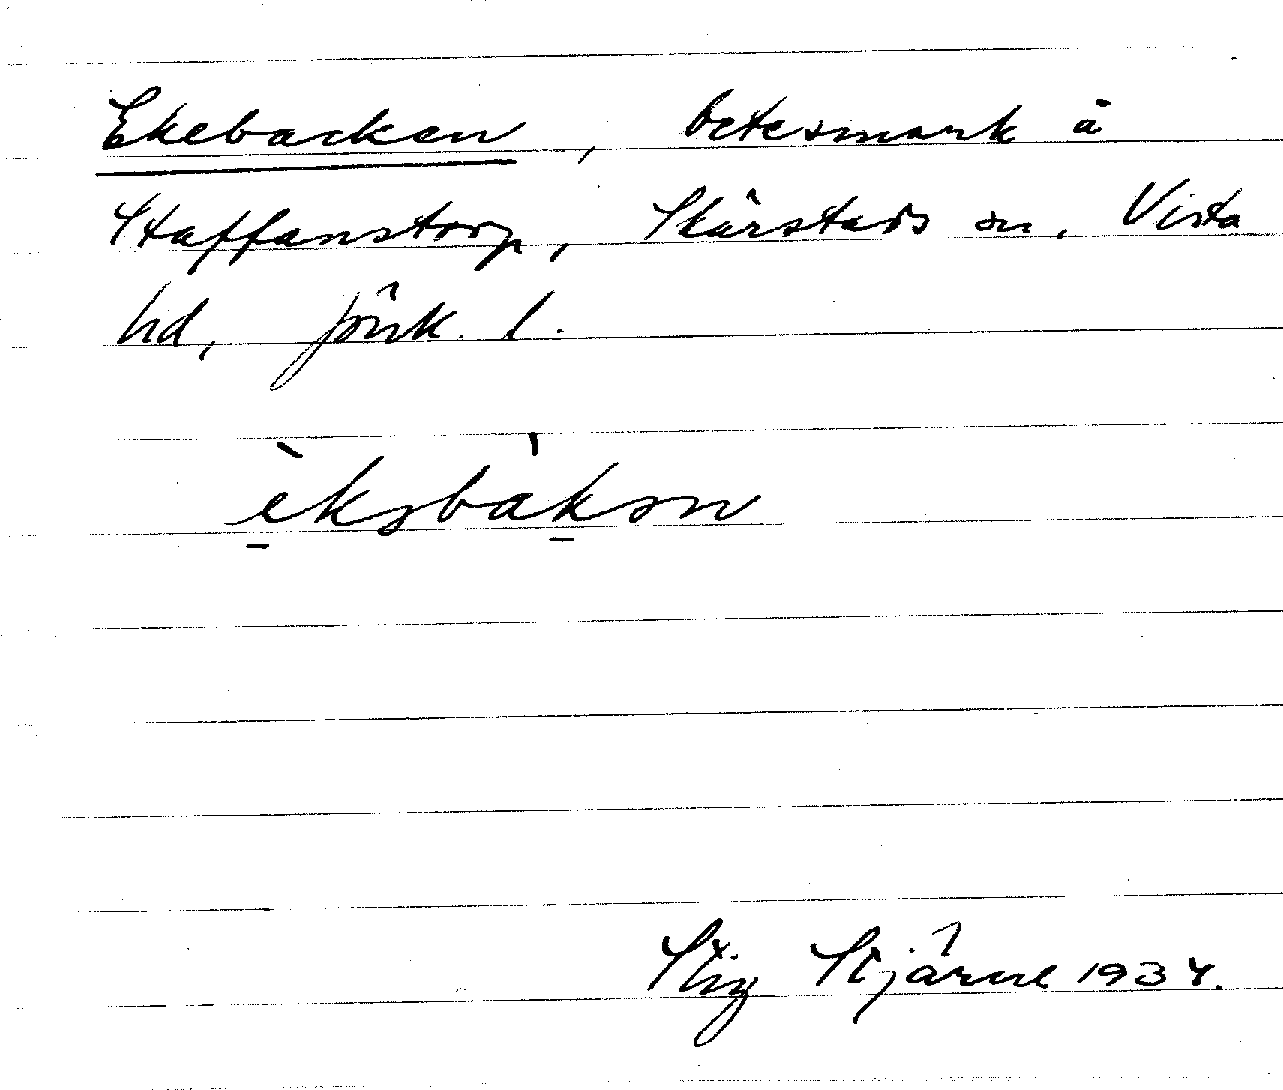 Ekebacken, betesmark å
Staffanstorp, Skärstads sn. Vista
hd, Jönk. l.
Stig Stjärne 1934.